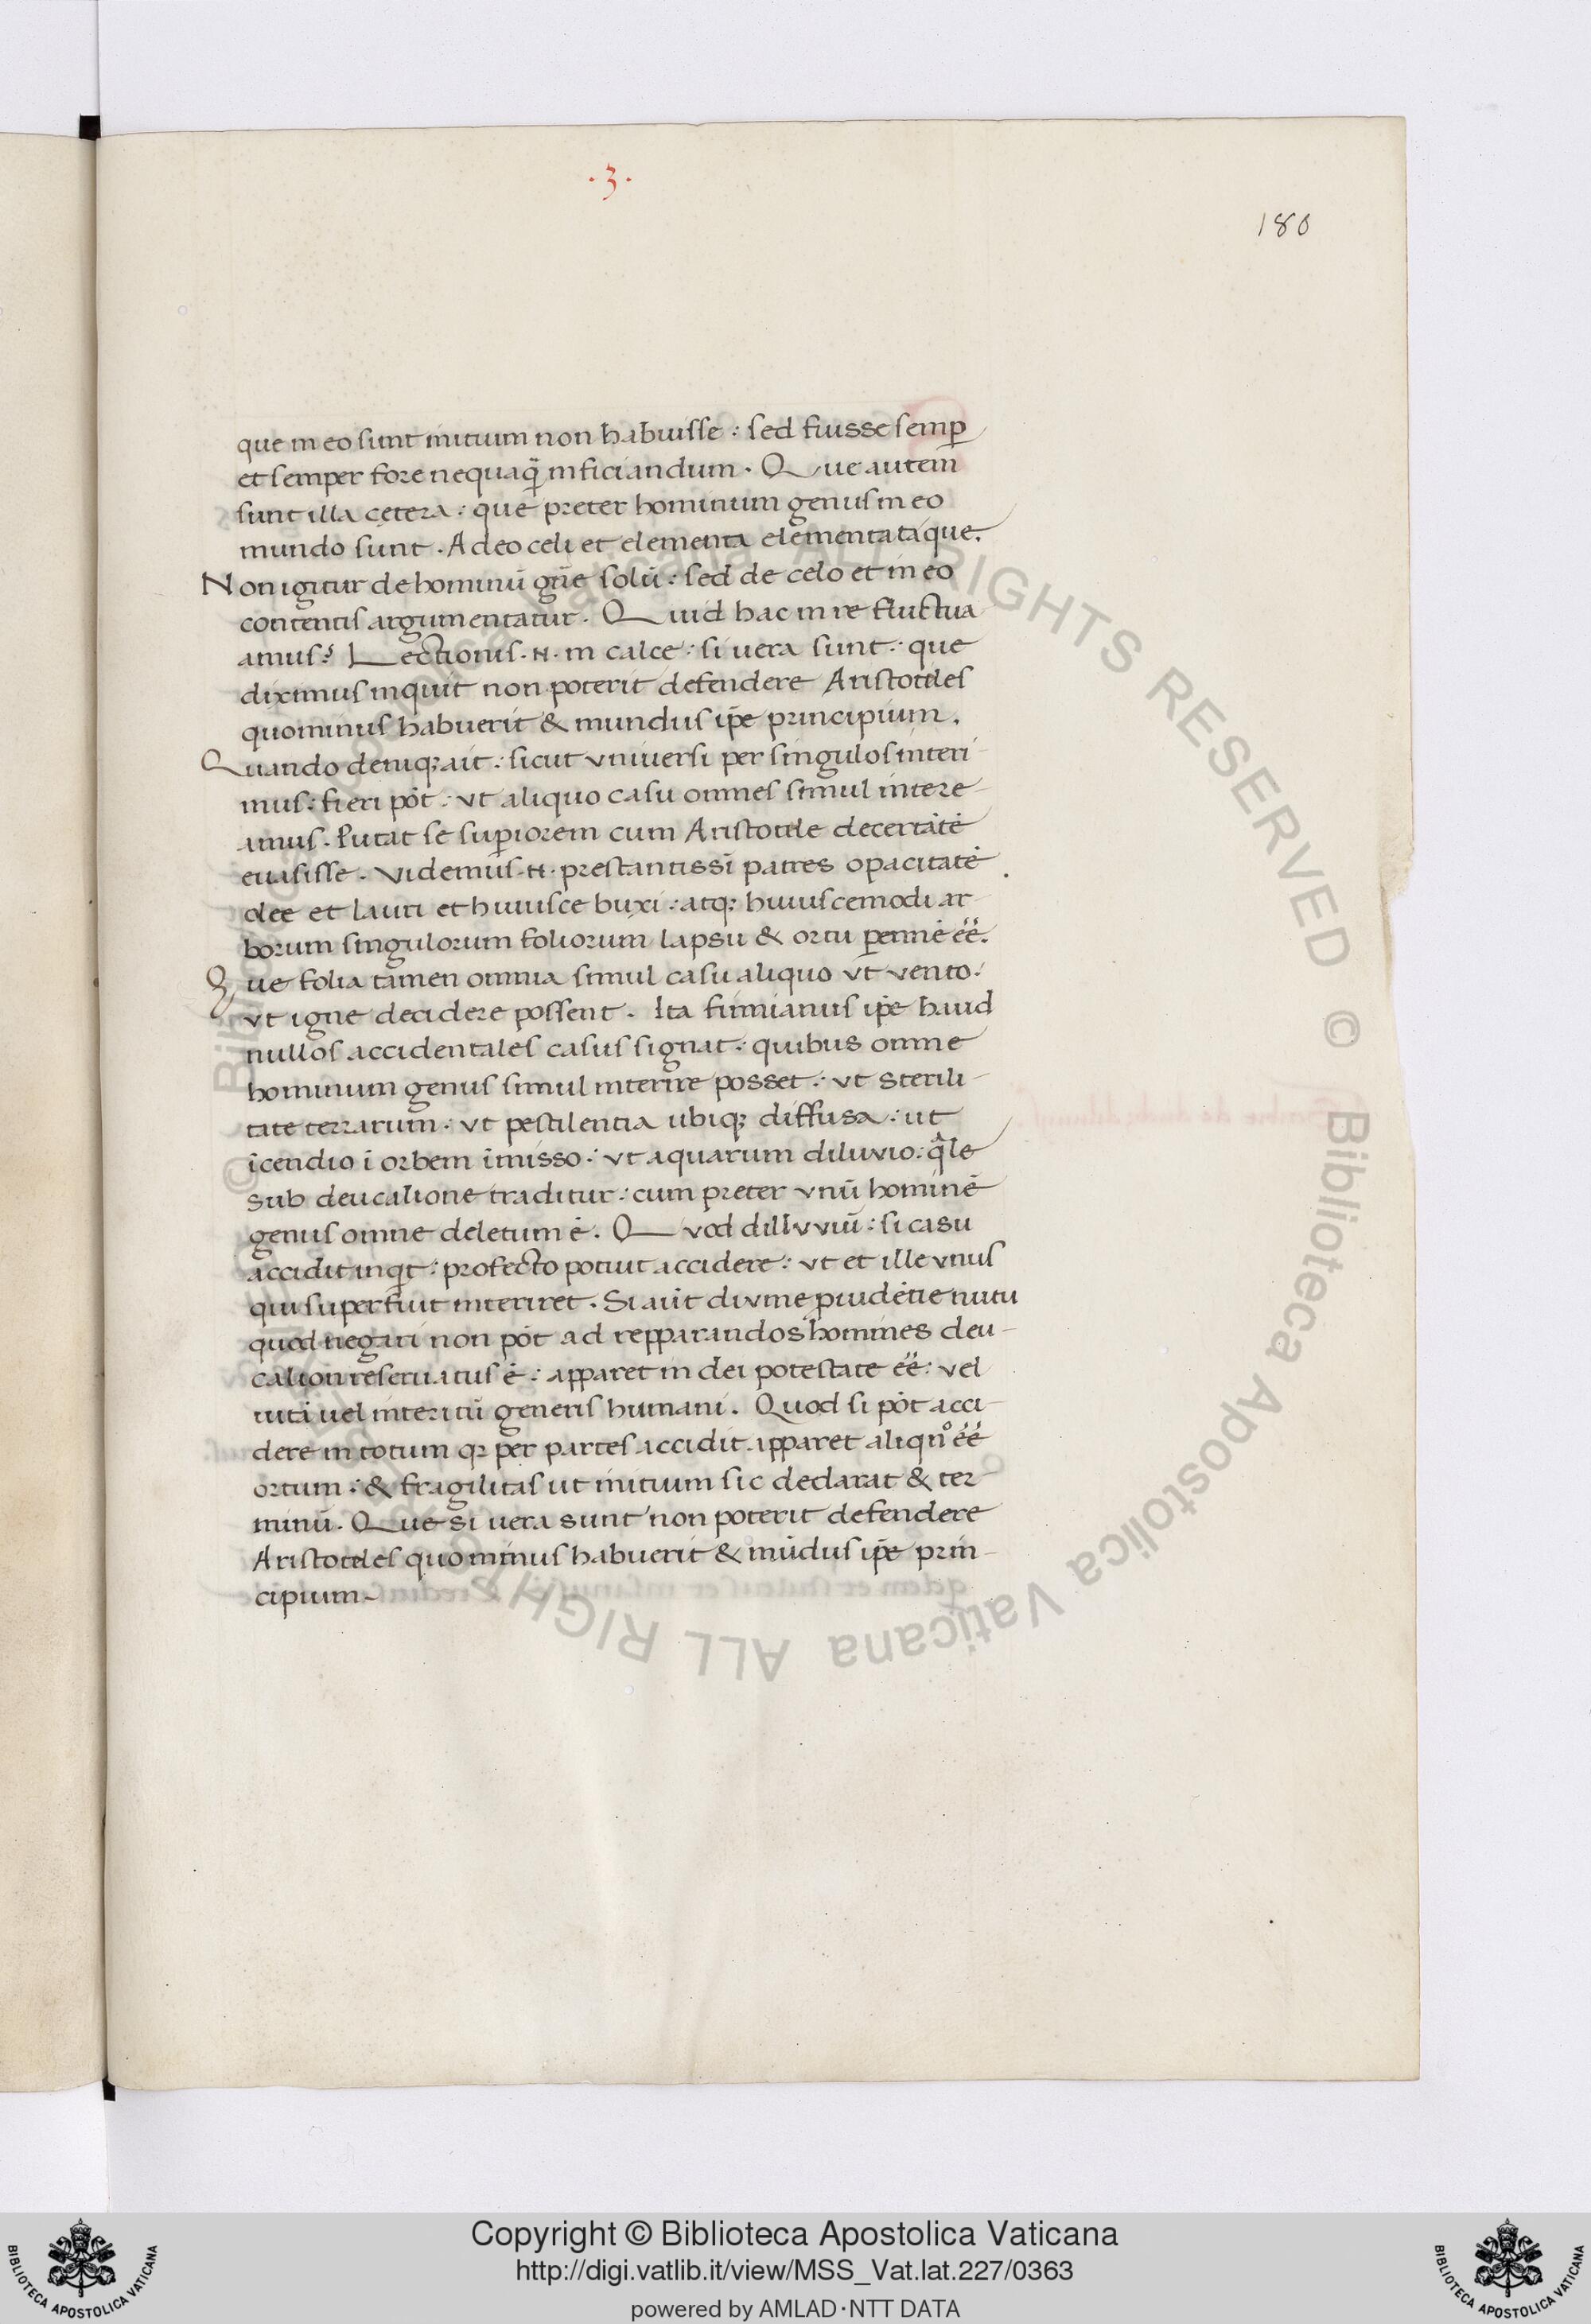 .3.
180
que in eo sunt initium non habuisse : sed fuisse semp̱
et semper fore nequaq̃ inficiandum . Que autem
sunt illa cetera : que preter hominum genus in eo
mundo sunt . Adeo celi et elementa elementataque.
Non igitur de hominū gñe solū : sed de celo et in eo
contentis argumentatur . Quid hac in re fluctua
amus? Lectionis .N. in calce : si vera sunt : que
diximus inquit non poterit defendere Aristotiles
quominus habuerit & mundus ip̄e principium .
Quando deniq; ait : sicut vniuersi per singulos interi-
mus : fieri pōt : vt aliquo casu omnes simul intere-
amus . Putat se sup̱iorem cum Aristotile decertātē
euasisse . Videmus .N. prestantissī patres opacitatē
olee et lauri et huiusce buxi : atq; huiuscemodi ar-
borum singulorum foliorum lapsu & ortu p̱ennē ēē.
Que folia tamen omnia simul casu aliquo vt vento :
vt igne decidere possent . Ita firmianus ip̄e haud
nullos accidentales casus signat : quibus omne
hominum genus simul interire posset : vt sterili-
tate terrarum : vt pestilentia ubiq; diffusa : ut
īcendio ī orbem īmisso : vt aquarum diluvio : q̄le
sub deucalione traditur : cum preter vnū hominē
genus omne deletum ē . Quod dilluviū : si casu
accidit inq̱t : profecto potuit accidere : vt et ille vnus
qui superfuit interiret . Si aūt divine p̱uidētie nutu
quod negari non pōt ad repparandos homines deu-
calion reseruatus ē : apparet in dei potestate ēē : vel
vitā vel interitū generis humani . Quod si pōt acci-
dere in totum q; per partes accidit apparet aliqn̊ ēē
ortum : & fragilitas ut initium sic declarat & ter-
minū . Que si uera sunt non poterit defendere
Aristotiles quominus habuerit & mūdus ip̄e prin-
cipium -
© Biblioteca Apostolica Vaticana ALL RIGHTS RESERVED © Biblioteca Apostolica Vaticana ALL RIGHTS RESERVED
Copyright © Biblioteca Apostolica Vaticana
http://digi.vatlib.it/view/MSS_Vat.lat.227/0363
powered by AMLAD·NTT DATA
BIBLIOTECA APOSTOLICA VATICANA
BIBLIOTECA APOSTOLICA VATICANA